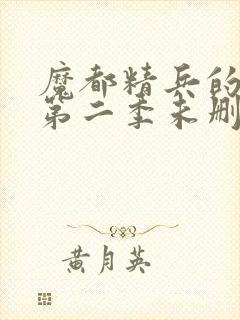 魔都精兵的
第二季未删
黄月英